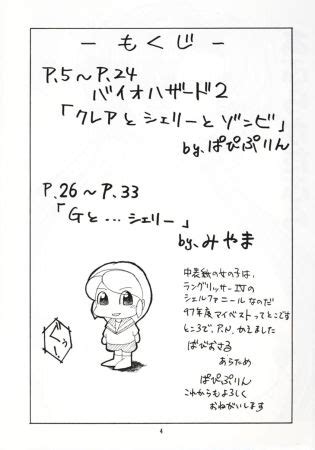 －もくじ－
P.5～P.24
バイオハザード2
「クレアとシェリーとゾンビ」
by、ぱぴぷりん
P.26～P.33
「Gと…シェリー」
by、みやま
中表紙の女の子は、
ラングリッサーⅣの
シェルファニールなのだ
97年度マイベストってとこです
ところで、P.N.かえました
ぱぴおさる
あらため
ぱぴぷりん
これからもよろしく
おねがいします
4